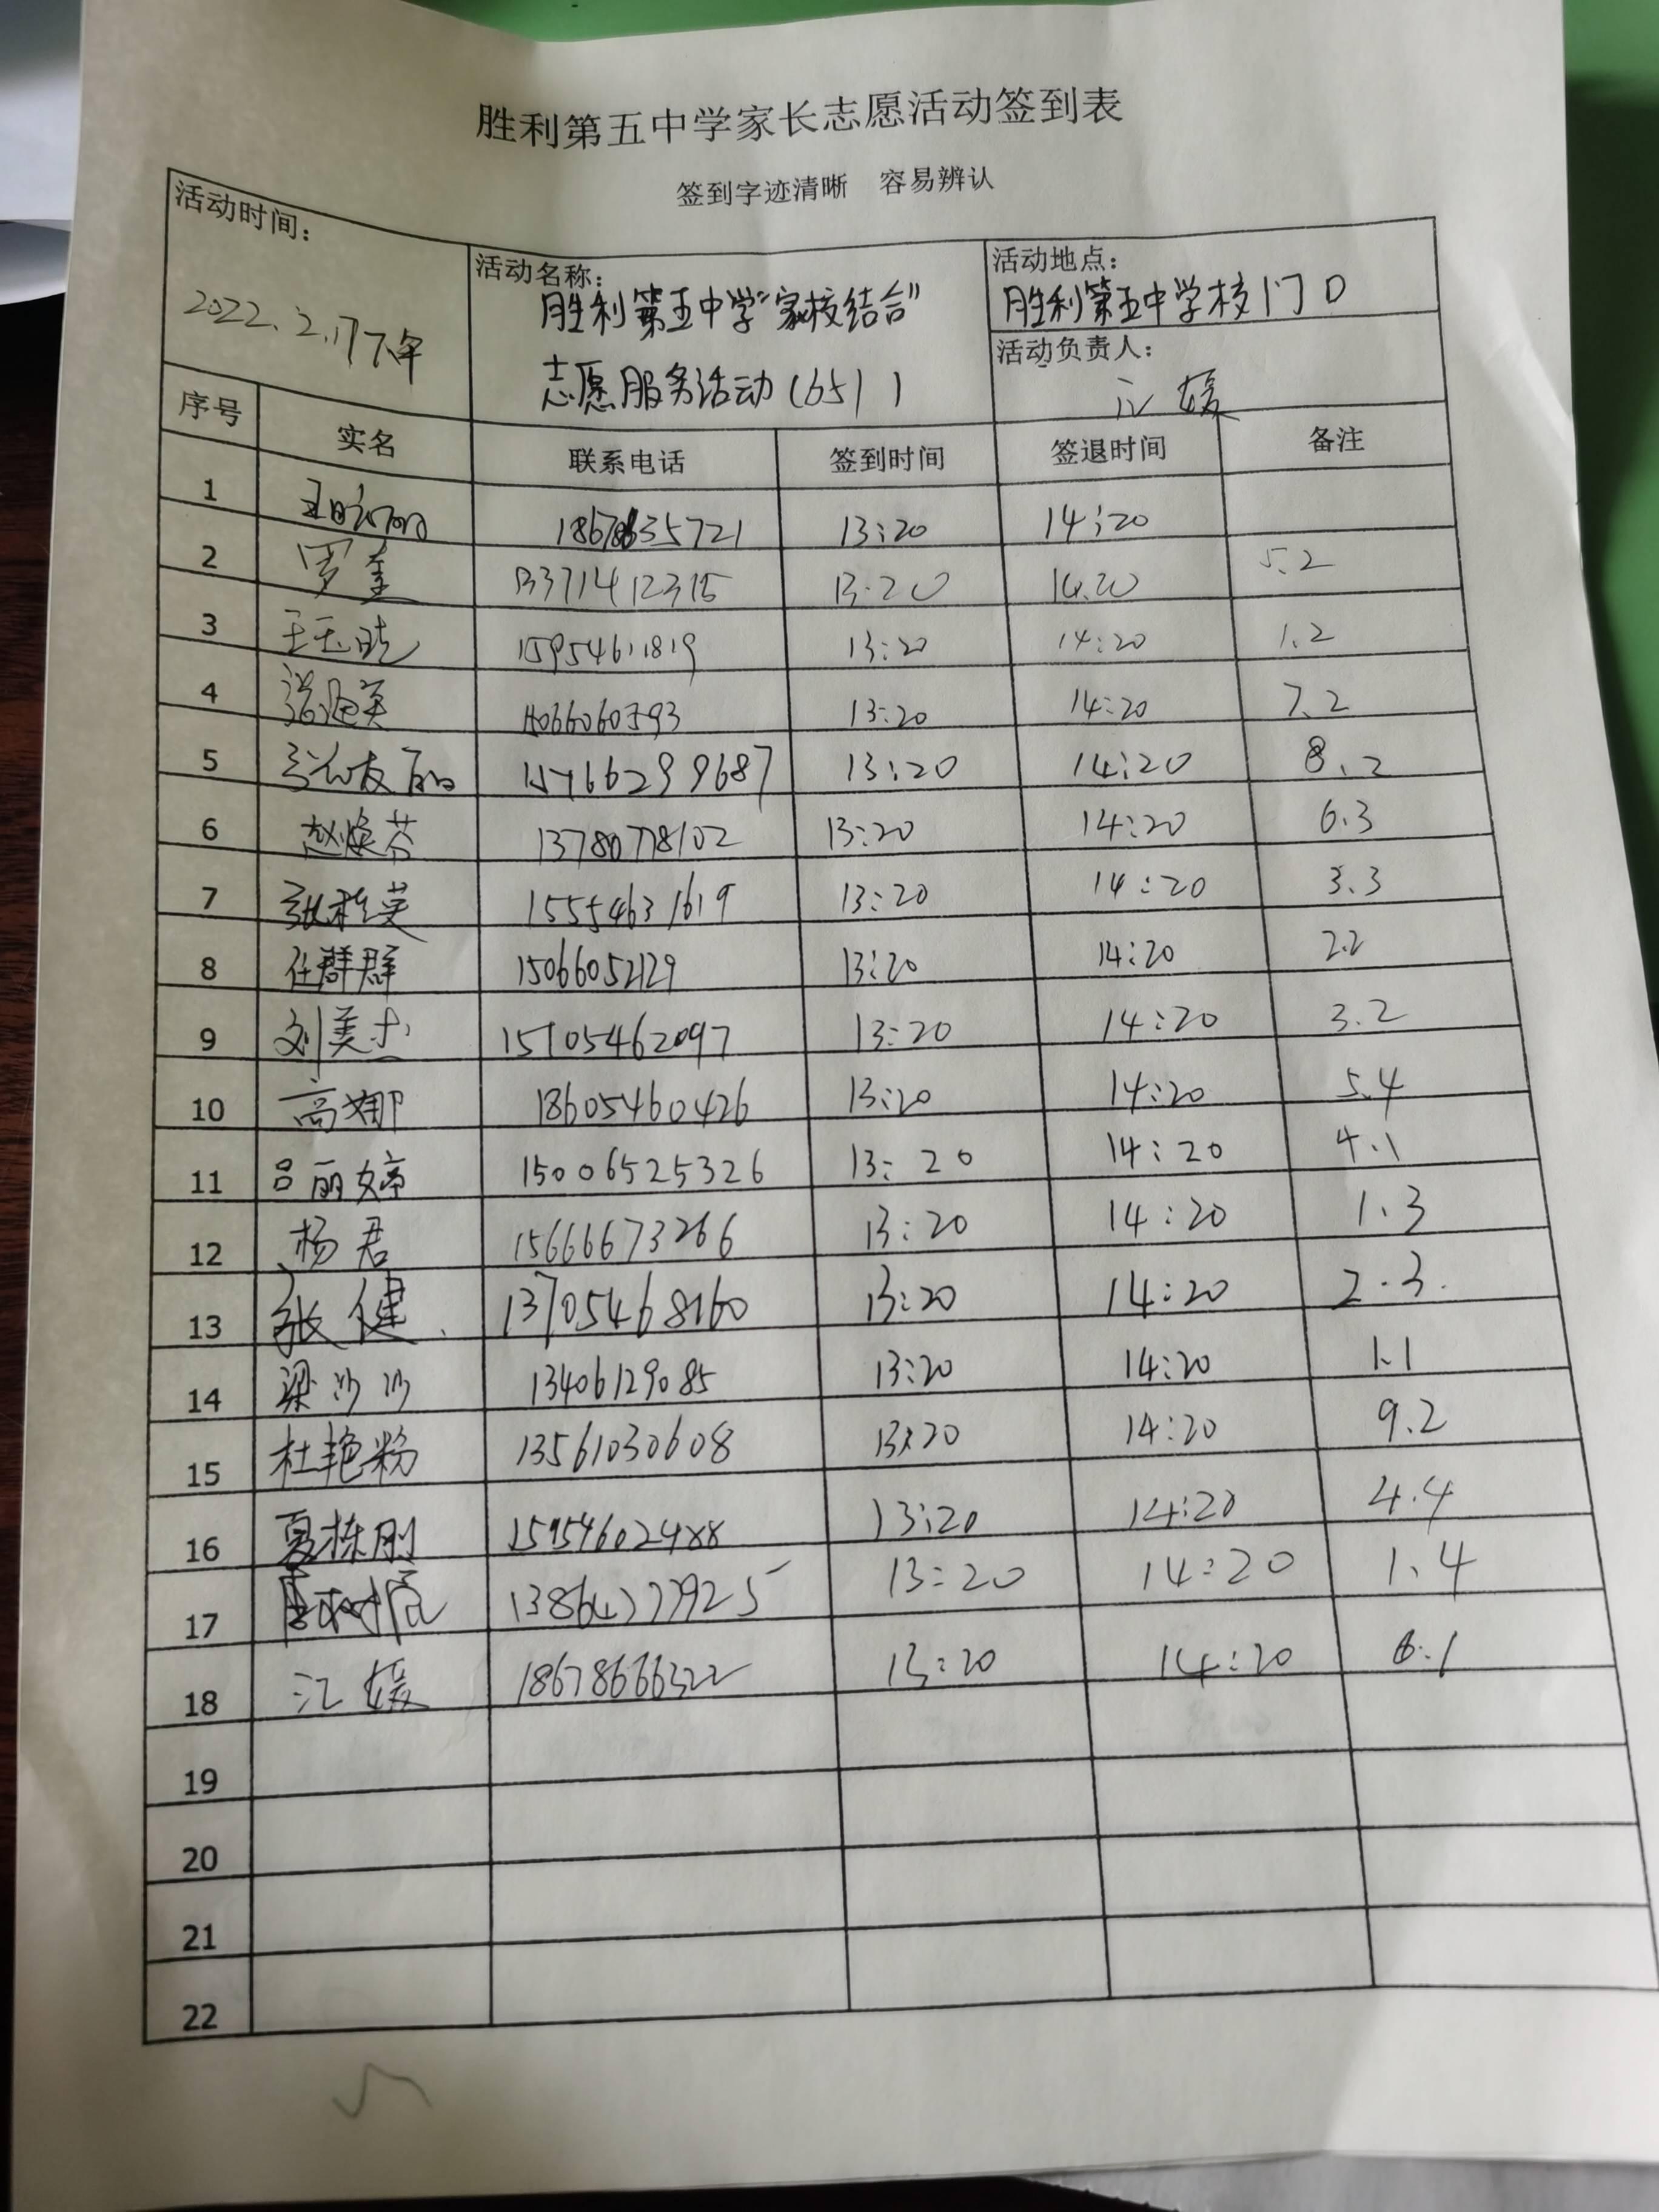 胜利第五中学家长志愿活动签到表
签到字迹清晰 容易辨认
活动时间：
2022.2.17下午
活动名称：
胜利第五中学“家校结合”
志愿服务活动(651)
活动地点：
胜利第五中学校门口
活动负责人：
江媛
序号 实名 联系电话 签到时间 签退时间 备注
1 13:20 14:20
2 罗奎 13371412315 13:20 14.20 5.2
3 王玉晓 15954611819 13:20 14:20 1.2
4 13:20 14:20 7.2
5 13:20 14:20 8.2
6 赵焕芬 13780778102 13:20 14:20 6.3
7 张桂英 15554631619 13:20 14:20 3.3
8 任群群 15066052129 13:20 14:20 2.2
9 刘美杰 15105462097 13:20 14:20 3.2
10 高娜 18605460426 13:20 14:20 5.4
11 吕丽婷 15006525326 13:20 14:20 4.1
12 杨君 15666673266 13:20 14:20 1.3
13 张健 13705468160 13:20 14:20 2.3.
14 梁沙沙 13406129085 13:20 14:20 1.1
15 杜艳粉 13561030608 13:20 14:20 9.2
16 夏栋刚 15954602488 13:20 14:20 4.4
17 13:20 14:20 1.4
18 江媛 18678666322 13:20 14:20 6.1
19
20
21
22